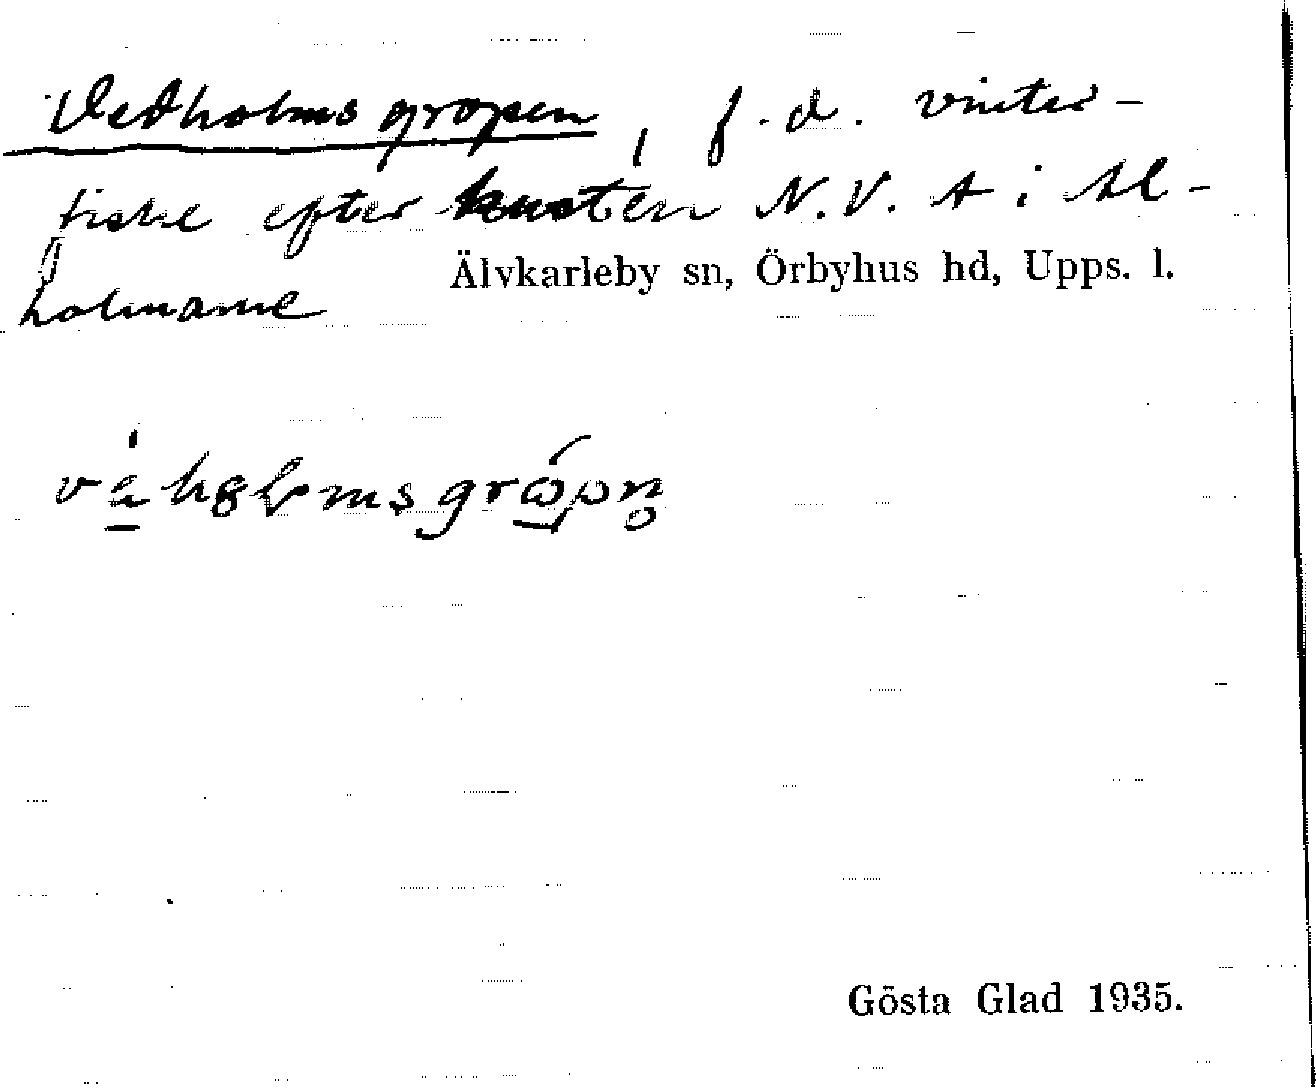 Vedholmsgropen, f.d. vinter-
fiske efter kusten N.V. A i Al-
holmarne
Älvkarleby sn, Örbyhus hd, Upps. l.
Gösta Glad 1935.